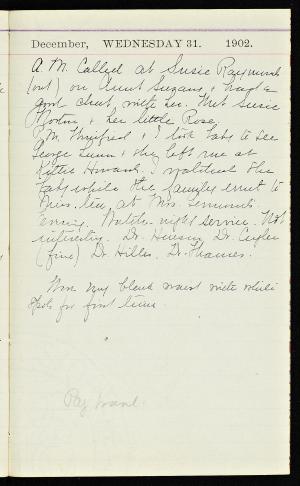 December, WEDNESDAY 31. 1902.
A. M. Called at Susie Raymond
(out) on Aunt Susans, & had a
good chat with her. Met Susie
Morton & her little Rose.
P. M. & I took baby to see
George Lunn & they left me at
Kittie Howard. I watched the
baby while the family went to
Miss. tea, at Mrs
Evening. Watch-night service. Not
interesting. Dr. Dr.
(fine) Dr. Hiller, Dr.
Wore my black waist with white
spots for first time.